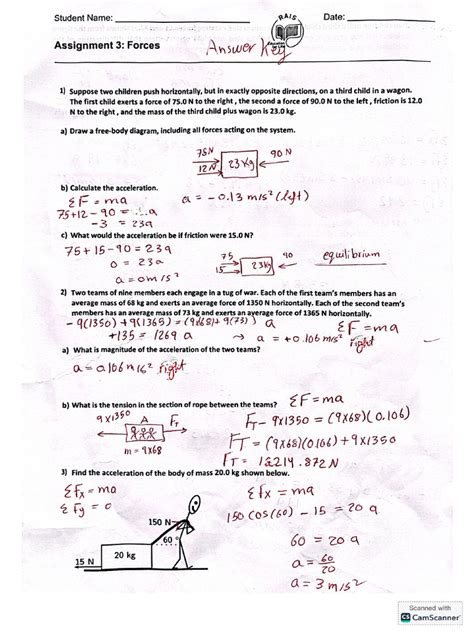 Student Name:
RAIS
Date:
Assignment 3: Forces
Answer Key
1) Suppose two children push horizontally, but in exactly opposite directions, on a third child in a wagon.
The first child exerts a force of 75.0 N to the right , the second a force of 90.0 N to the left , friction is 12.0
N to the right , and the mass of the third child plus wagon is 23.0 kg.
a) Draw a free-body diagram, including all forces acting on the system.
75N
12N
23Kg
90 N
b) Calculate the acceleration.
ΣF = ma
a = - 0.13 m/s² (left)
75+12 - 90 = a
-3 = 23a
c) What would the acceleration be if friction were 15.0 N?
75 + 15 - 90 = 23a
0 = 23a
a = 0 m/s²
75
15
23kg
90
equilibrium
2) Two teams of nine members each engage in a tug of war. Each of the first team's members has an
average mass of 68 kg and exerts an average force of 1350 N horizontally. Each of the second team's
members has an average mass of 73 kg and exerts an average force of 1365 N horizontally.
-9(1350) + 9(1365) = (9x68)+ 9(73)) a
ΣF = ma
+135 = 1269 a
→ a = +0.106 m/s² right
a) What is magnitude of the acceleration of the two teams?
a = 0.106 m/s² right
b) What is the tension in the section of rope between the teams?
ΣF = ma
9x1350
A
FT
m = 9x68
FT - 9x1350 = (9x68)(0.106)
FT = (9x68)(0.106) + 9x1350
FT = 12214.872N
3) Find the acceleration of the body of mass 20.0 kg shown below.
ΣFx = ma
ΣFy = 0
Σfx = ma
150 cos(60) - 15 = 20 a
60 = 20 a
a = 60/20
a = 3 m/s²
150 N
60°
20 kg
15 N
Scanned with
CS CamScanner